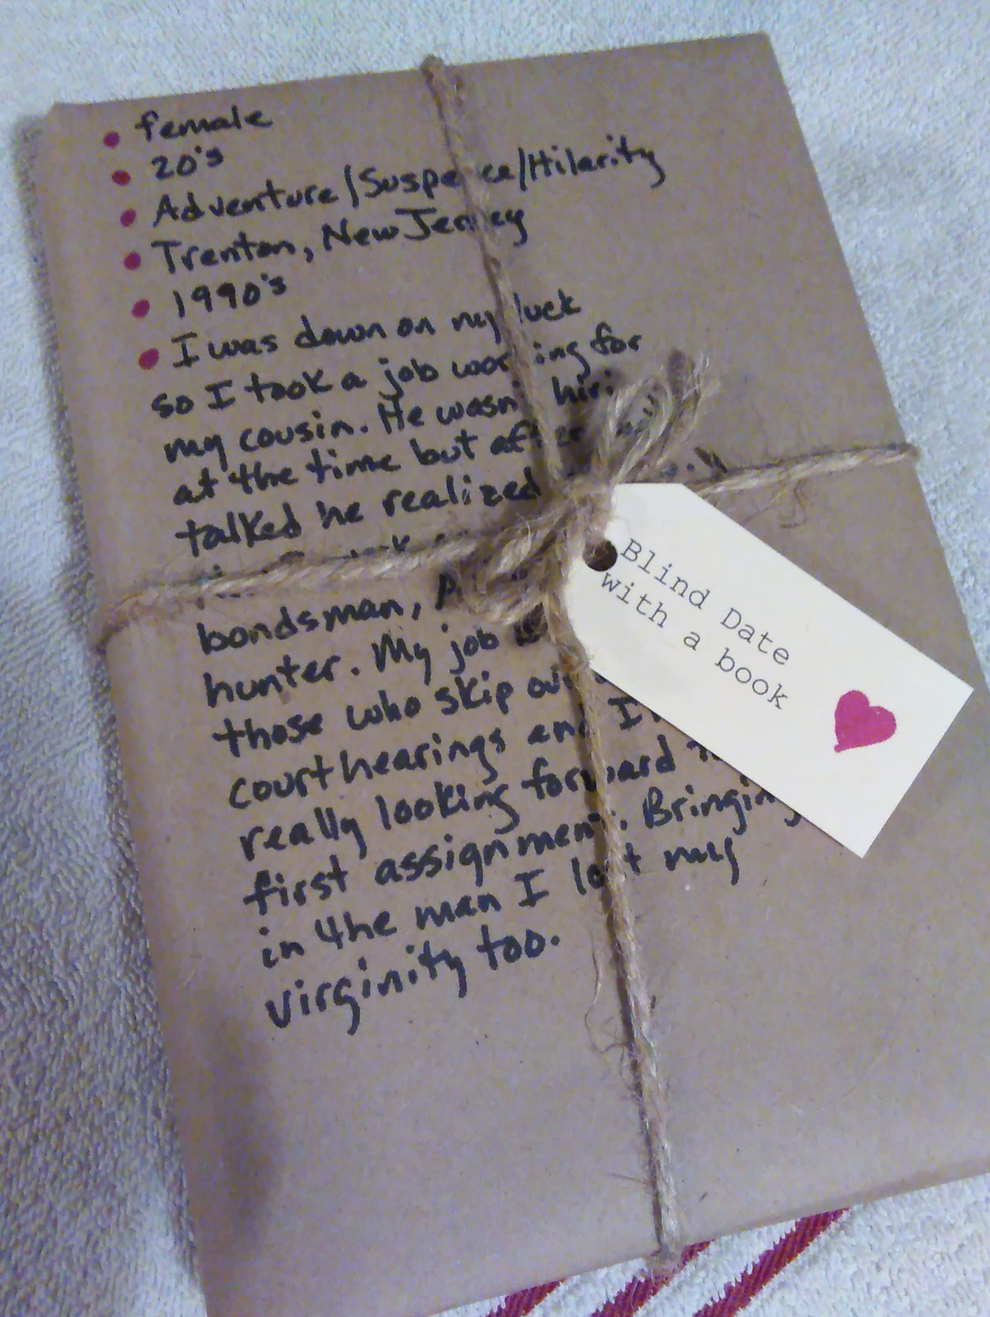 female
20's
Adventure/Suspence/Hilarity
Trenton, New Jersey
1990's
I was down on my luck
so I took a job working for
my cousin. He wasn't
at the time but after
talked he realized
bondsman,
hunter. My job is
those who skip out
court hearings and I'm
really looking forward to
first assignment. Bringing
in the man I lost my
virginity too.
Blind Date
with a book